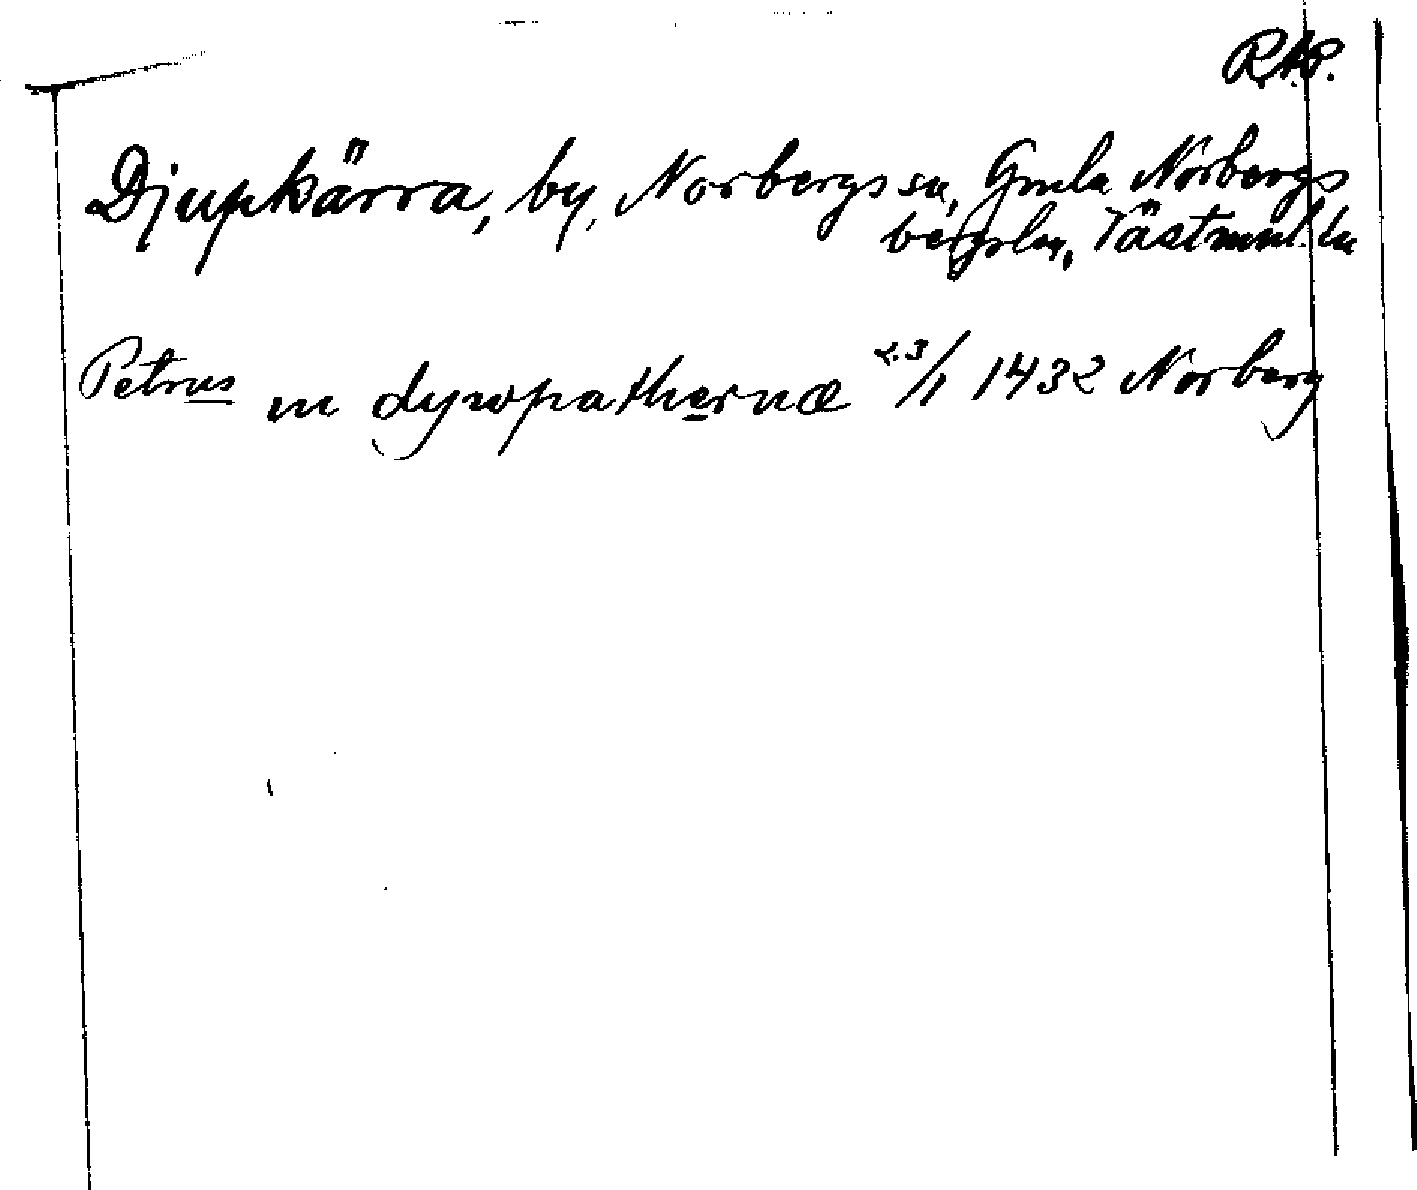 R.A.P.
Djupkärra, by, Norbergs sn, Gmla Norbergs
bergslag, Västmanl. län
Petrus in dywpathernæ 23/1 1432 Norberg